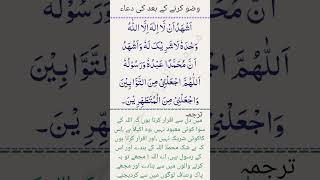 وضو کرنے کے بعد کی دعاء
اَشْهَدُ اَنْ لَّا اِلٰهَ اِلَّا اللّٰهُ
وَحْدَهٗ لَا شَرِيْكَ لَهٗ وَاَشْهَدُ
اَنَّ مُحَمَّدًا عَبْدُهٗ وَرَسُوْلُهٗ
اَللّٰهُمَّ اجْعَلْنِيْ مِنَ التَّوَّابِيْنَ
وَاجْعَلْنِيْ مِنَ الْمُتَطَهِّرِيْنَ۔
ترجمہ
میں دل سے اقرار کرتا ہوں کہ اللہ کے
سوا کوئی معبود نہیں وہ اکیلا ہے اس
کا کوئی شریک نہیں اور اقرار کرتا ہوں
کہ بے شک محمد اللہ کے بندے اور اس
کے رسول ہیں، اے اللہ! مجھے تو بہ
کرنے والوں میں سے بنا دے اور مجھے
پاک وصاف لوگوں میں سے کر دیجئے۔